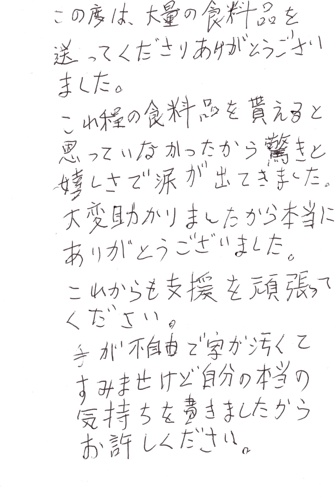 この度は、大量の食料品を
送ってくださりありがとうござい
ました。
これ程の食料品を貰えると
思っていなかったから驚きと
嬉しさで涙が出てきました。
大変助かりましたから本当に
ありがとうございました。
これからも支援を頑張って
ください。
手が不自由で字が汚くて
すみませけど自分の本当の
気持ちを書きましたから
お許しください。